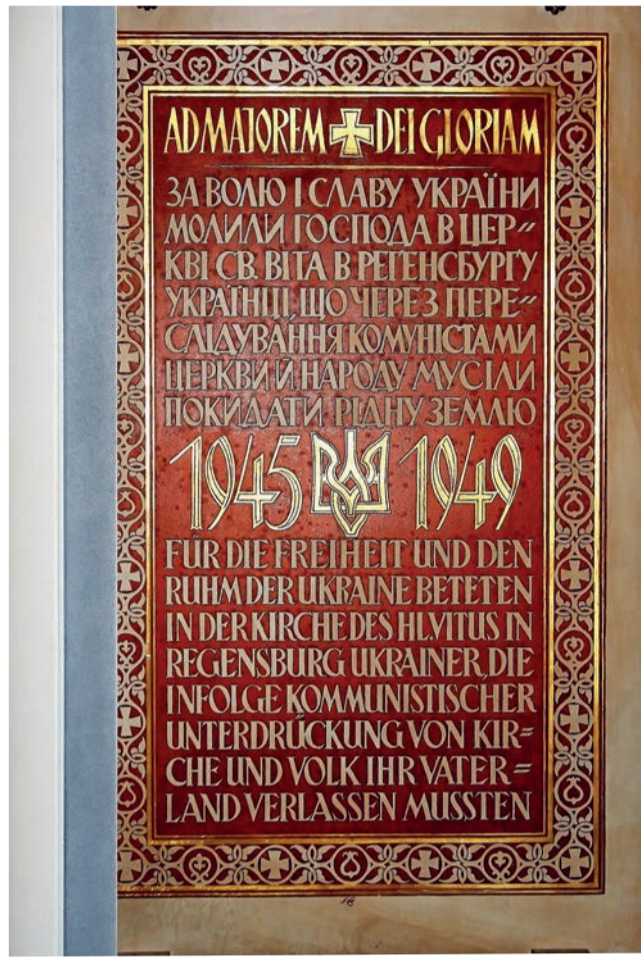 AD MAIOREM DEI GLORIAM
ЗА ВОЛЮ І СЛАВУ УКРАЇНИ
МОЛИЛИ ГОСПОДА В ЦЕР〃
КВІ СВ. ВІТА В РЕҐЕНСБУРҐУ
УКРАЇНЦІ, ЩО ЧЕРЕЗ ПЕРЕ〃
СЛІДУВАННЯ КОМУНІСТАМИ
ЦЕРКВИ Й НАРОДУ МУСІЛИ
ПОКИДАТИ РІДНУ ЗЕМЛЮ
1945 1949
FÜR DIE FREIHEIT UND DEN
RUHM DER UKRAINE BETETEN
IN DER KIRCHE DES HL. VITUS IN
REGENSBURG UKRAINER, DIE
INFOLGE KOMMUNISTISCHER
UNTERDRÜCKUNG VON KIR=
CHE UND VOLK IHR VATER=
LAND VERLASSEN MUSSTEN